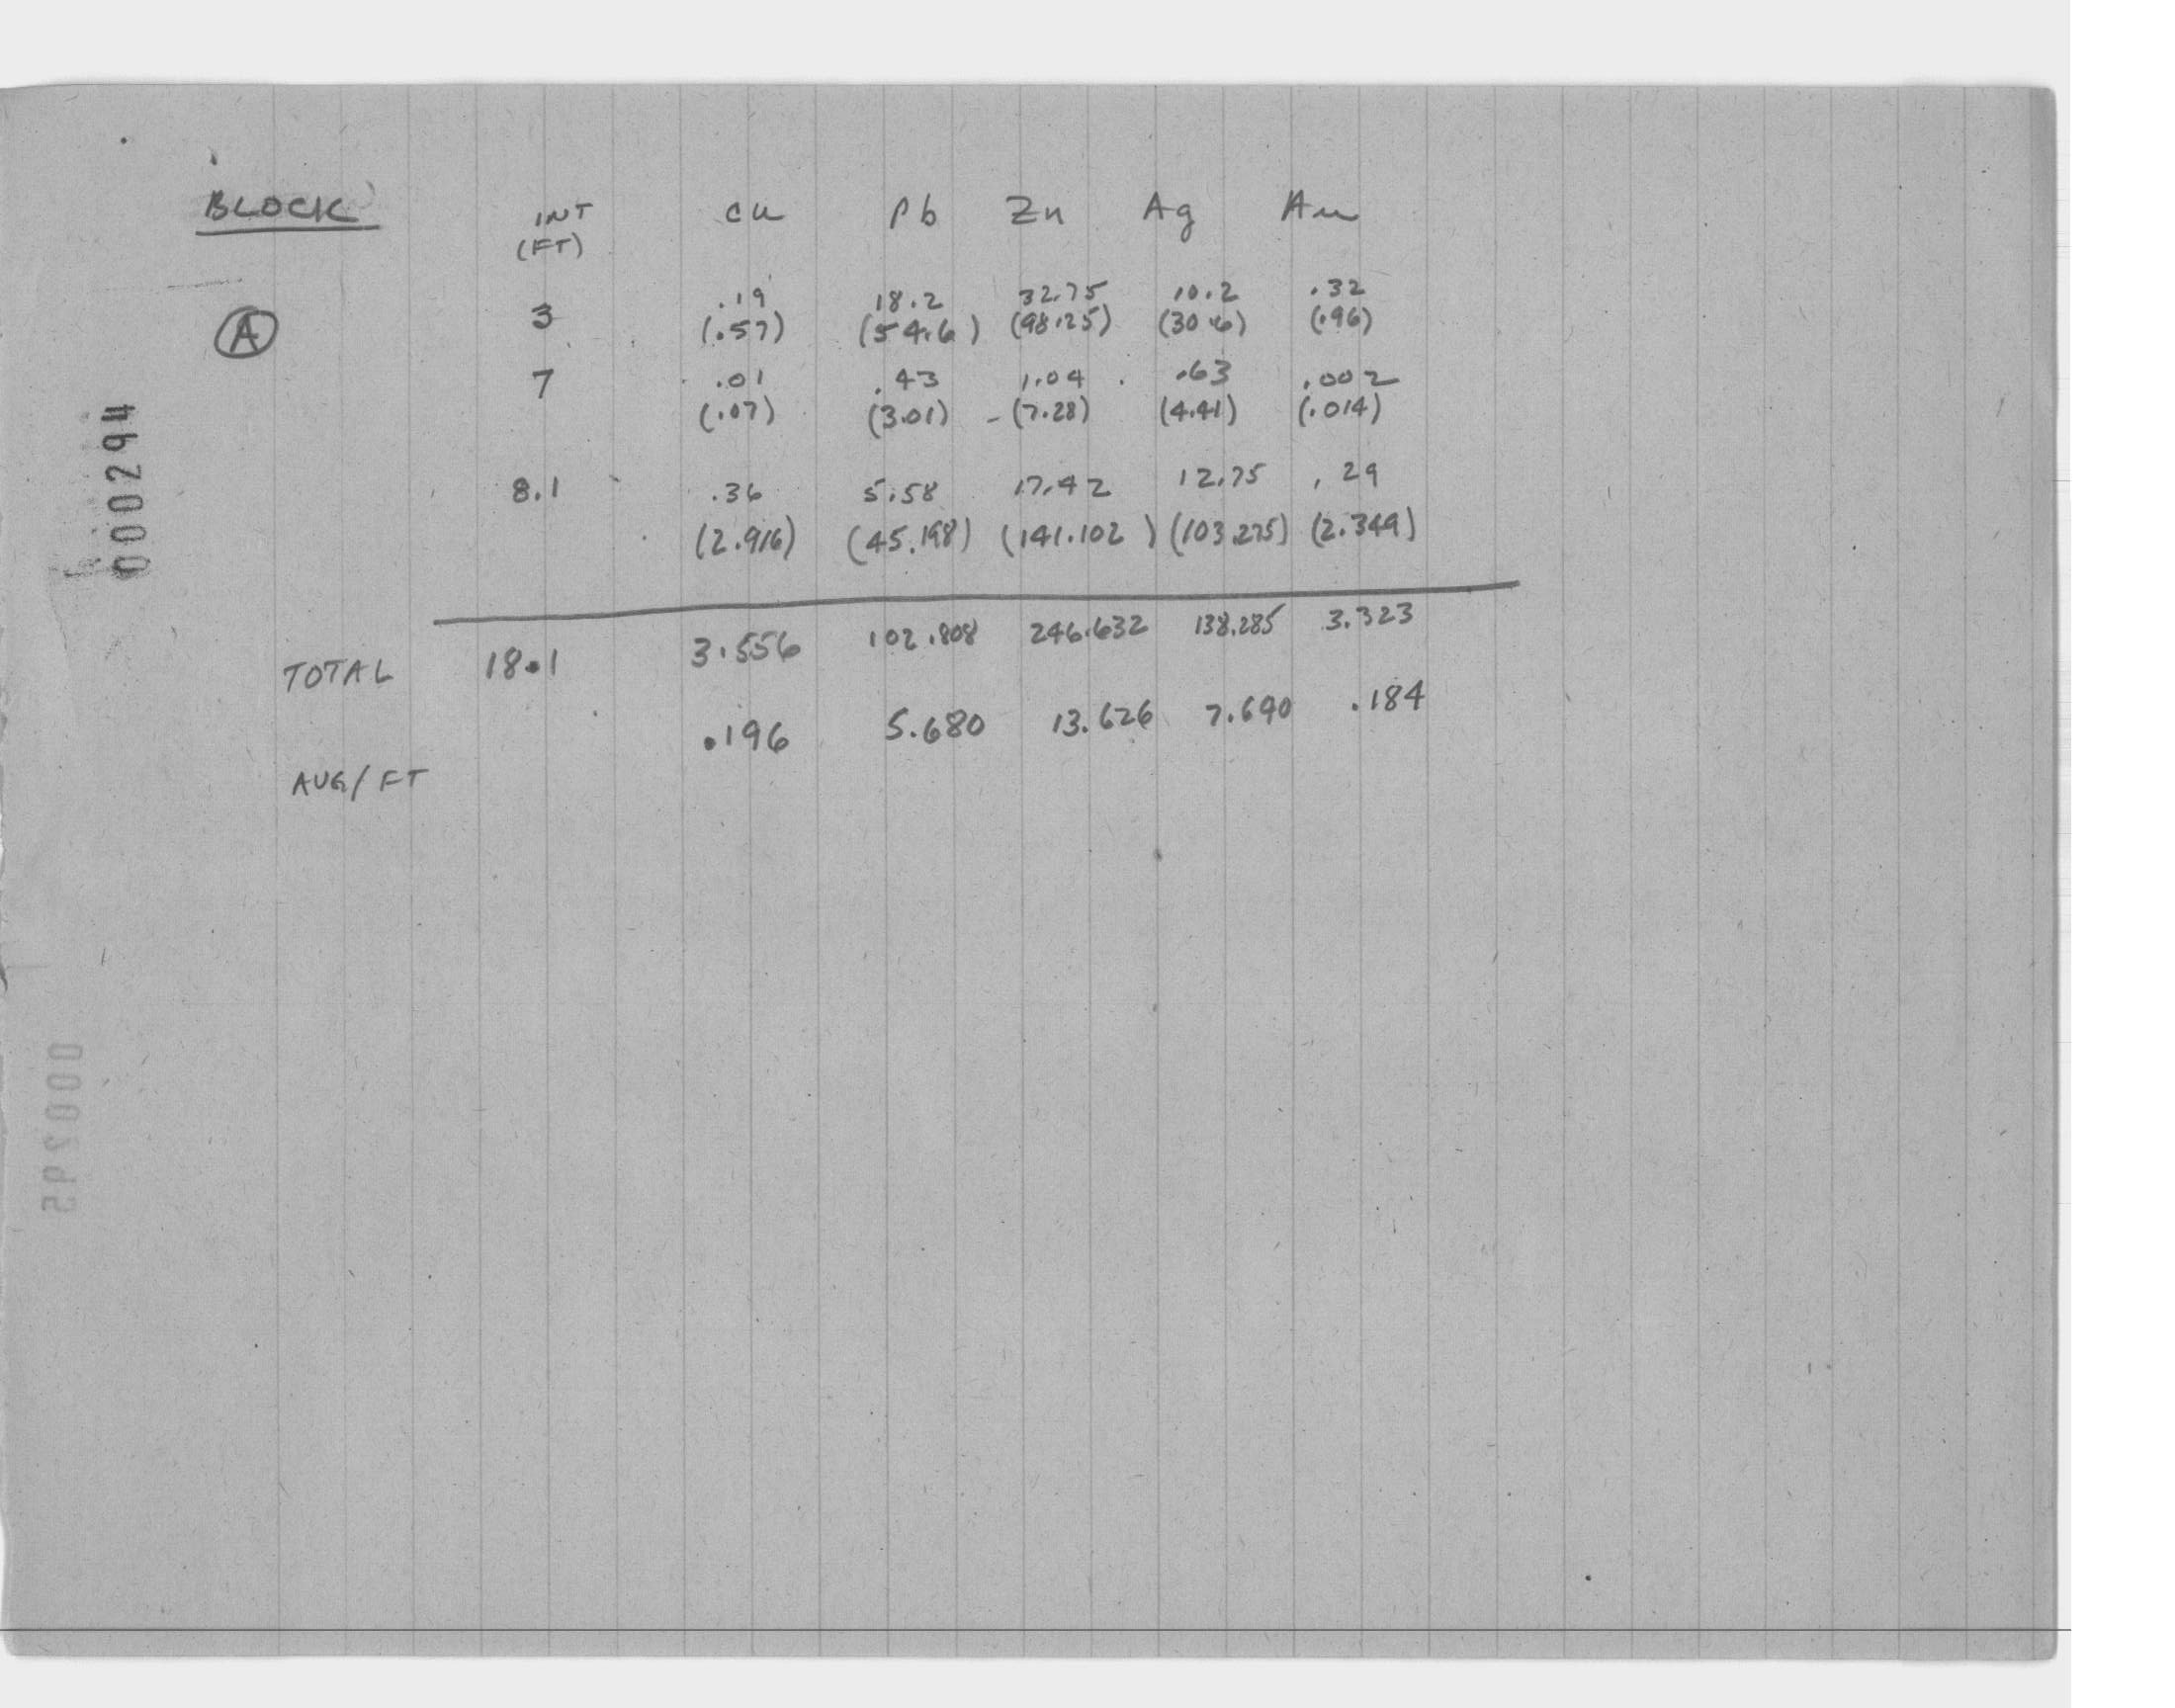 BLOCK INT (FT) Cu Pb Zn Ag Au
A 3 .19 18.2 32.75 10.2 .32
(.57) (54.6) (98.25) (30.6) (.96)
7 .01 .43 1.04 .63 .002
(.07) (3.01) (7.28) (4.41) (.014)
8.1 .36 5.58 17.42 12.75 .29
(2.916) (45.198) (141.102) (103.275) (2.349)
TOTAL 18.1 3.556 102.808 246.632 138.285 3.323
AVG/FT .196 5.680 13.626 7.640 .184
000294
000295